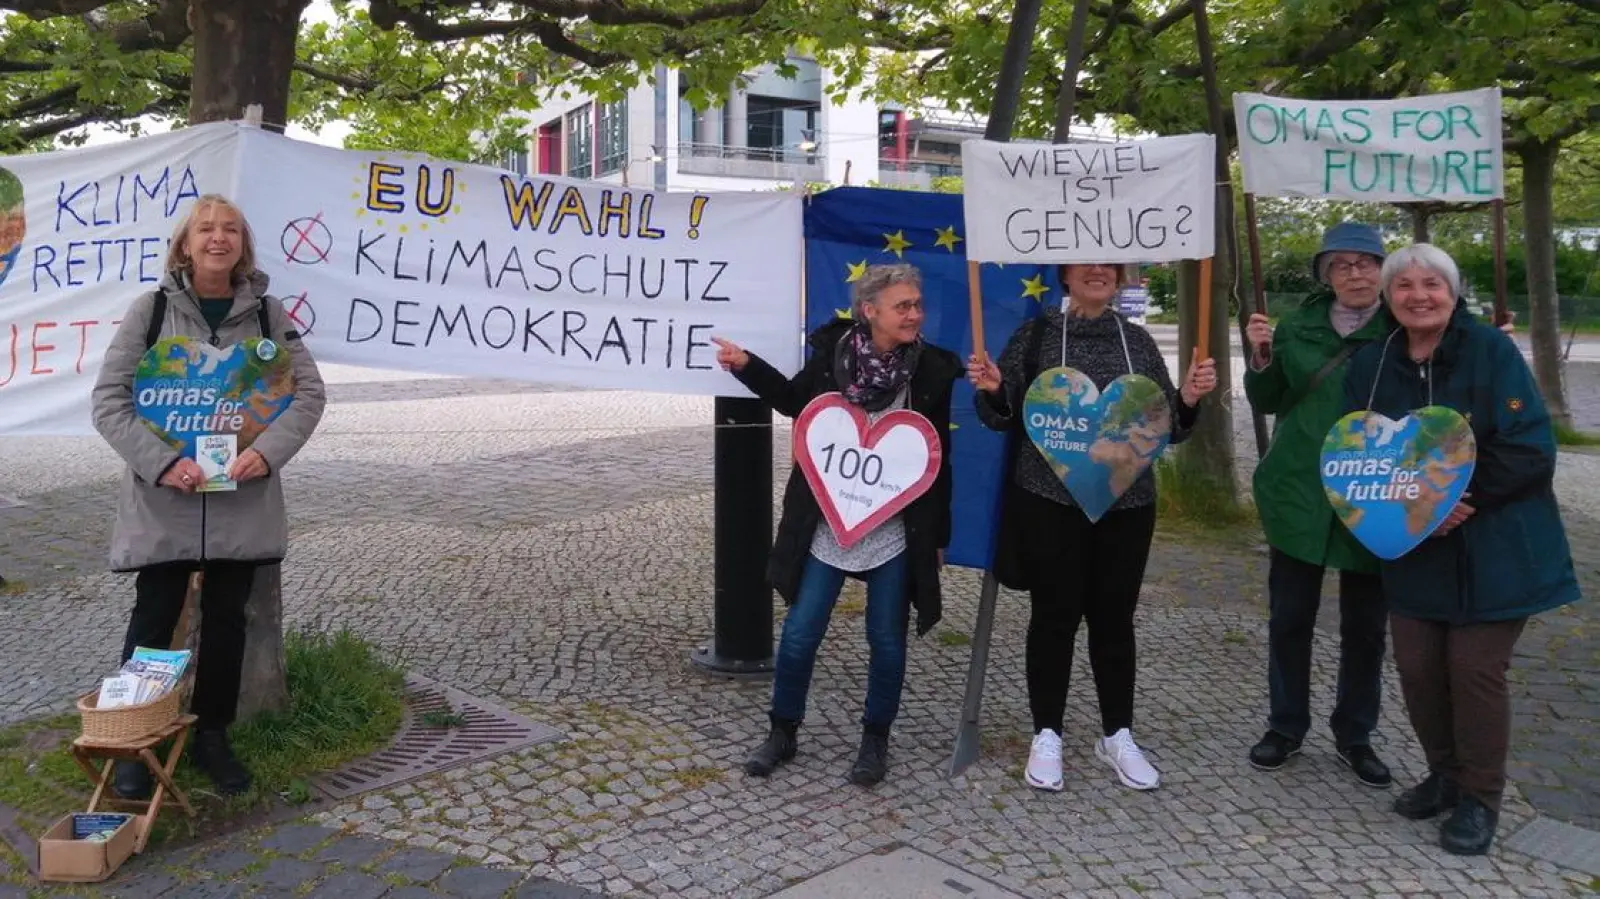 KLIMA
RETTE
JETZ
EU WAHL!
KLIMASCHUTZ
DEMOKRATIE
WIEVIEL
IST
GENUG?
OMAS FOR
FUTURE
omas for
future
100 km/h
freiwillig
OMAS
FOR
FUTURE
omas for
future